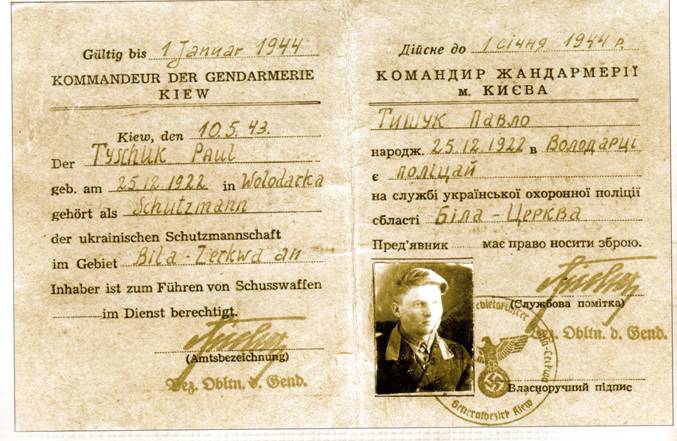 Gültig bis 1 Januar 1944
KOMMANDEUR DER GENDARMERIE
KIEW
Kiew, den 10.5.43.
Der Tyschuk Paul
geb. am 25.12.1922 in Wolodarka
gehört als Schutzmann
der ukrainischen Schutzmannschaft
im Gebiet Bila-Zerkwa an
Inhaber ist zum Führen von Schusswaffen
im Dienst berechtigt.
(Amtsbezeichnung)
Bez. Obltn. d. Gend.
Дійсне до 1 січня 1944 р.
КОМАНДИР ЖАНДАРМЕРІЇ
м. КИЄВА
Тишук Павло
народж. 25.12.1922 в Володарці
є поліцай
на службі української охоронної поліції
области Біла-Церква
Пред'явник має право носити зброю.
(Службова помітка)
Bez. Obltn. d. Gend.
Власноручний підпис
Generalbezirk Kiew